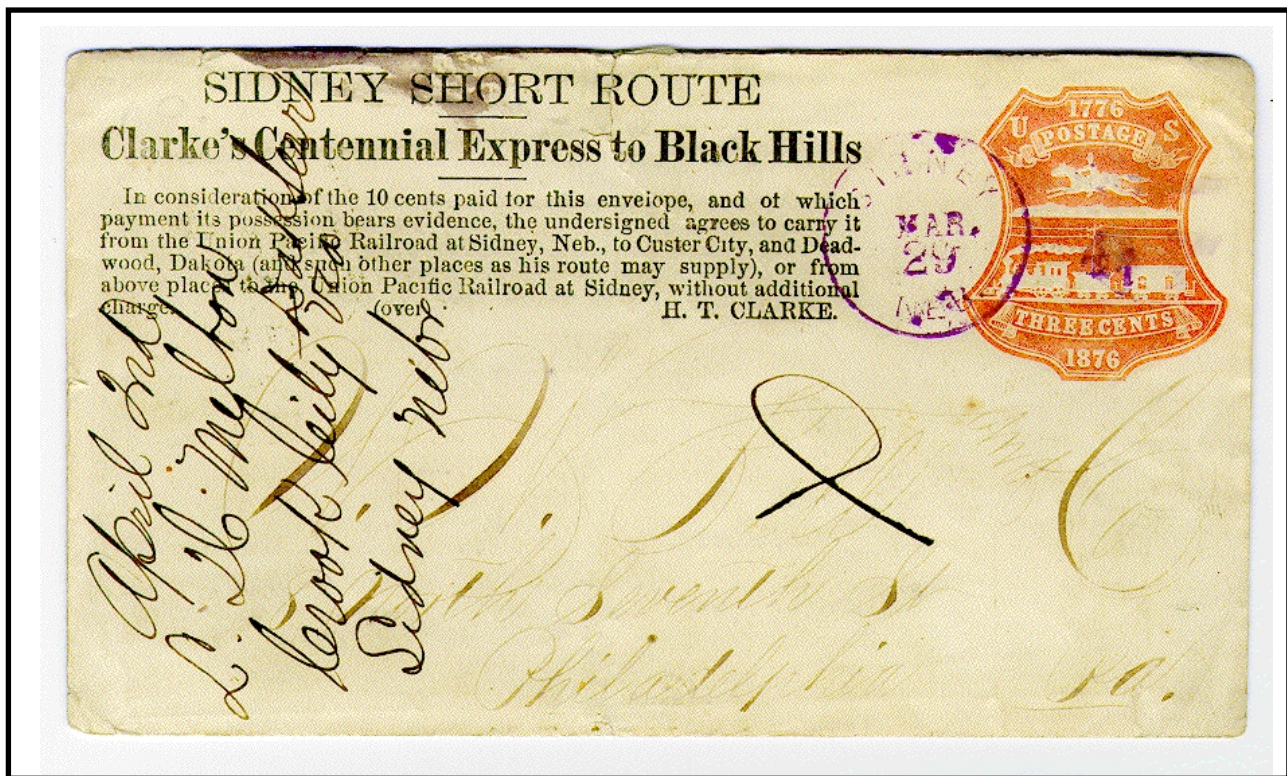 SIDNEY SHORT ROUTE
Clarke's Centennial Express to Black Hills
In consideration of the 10 cents paid for this envelope, and of which
payment its possession bears evidence, the undersigned agrees to carry it
from the Union Pacific Railroad at Sidney, Neb., to Custer City, and Dead-
wood, Dakota (and such other places as his route may supply), or from
above places to the Union Pacific Railroad at Sidney, without additional
charge. (over) H. T. CLARKE.
SIDNEY
MAR.
29
NEB.
1776
U POSTAGE S
THREE CENTS
1876
April 3rd
Crook City
Sidney Nebr
Seventh St
Philadelphia Pa.